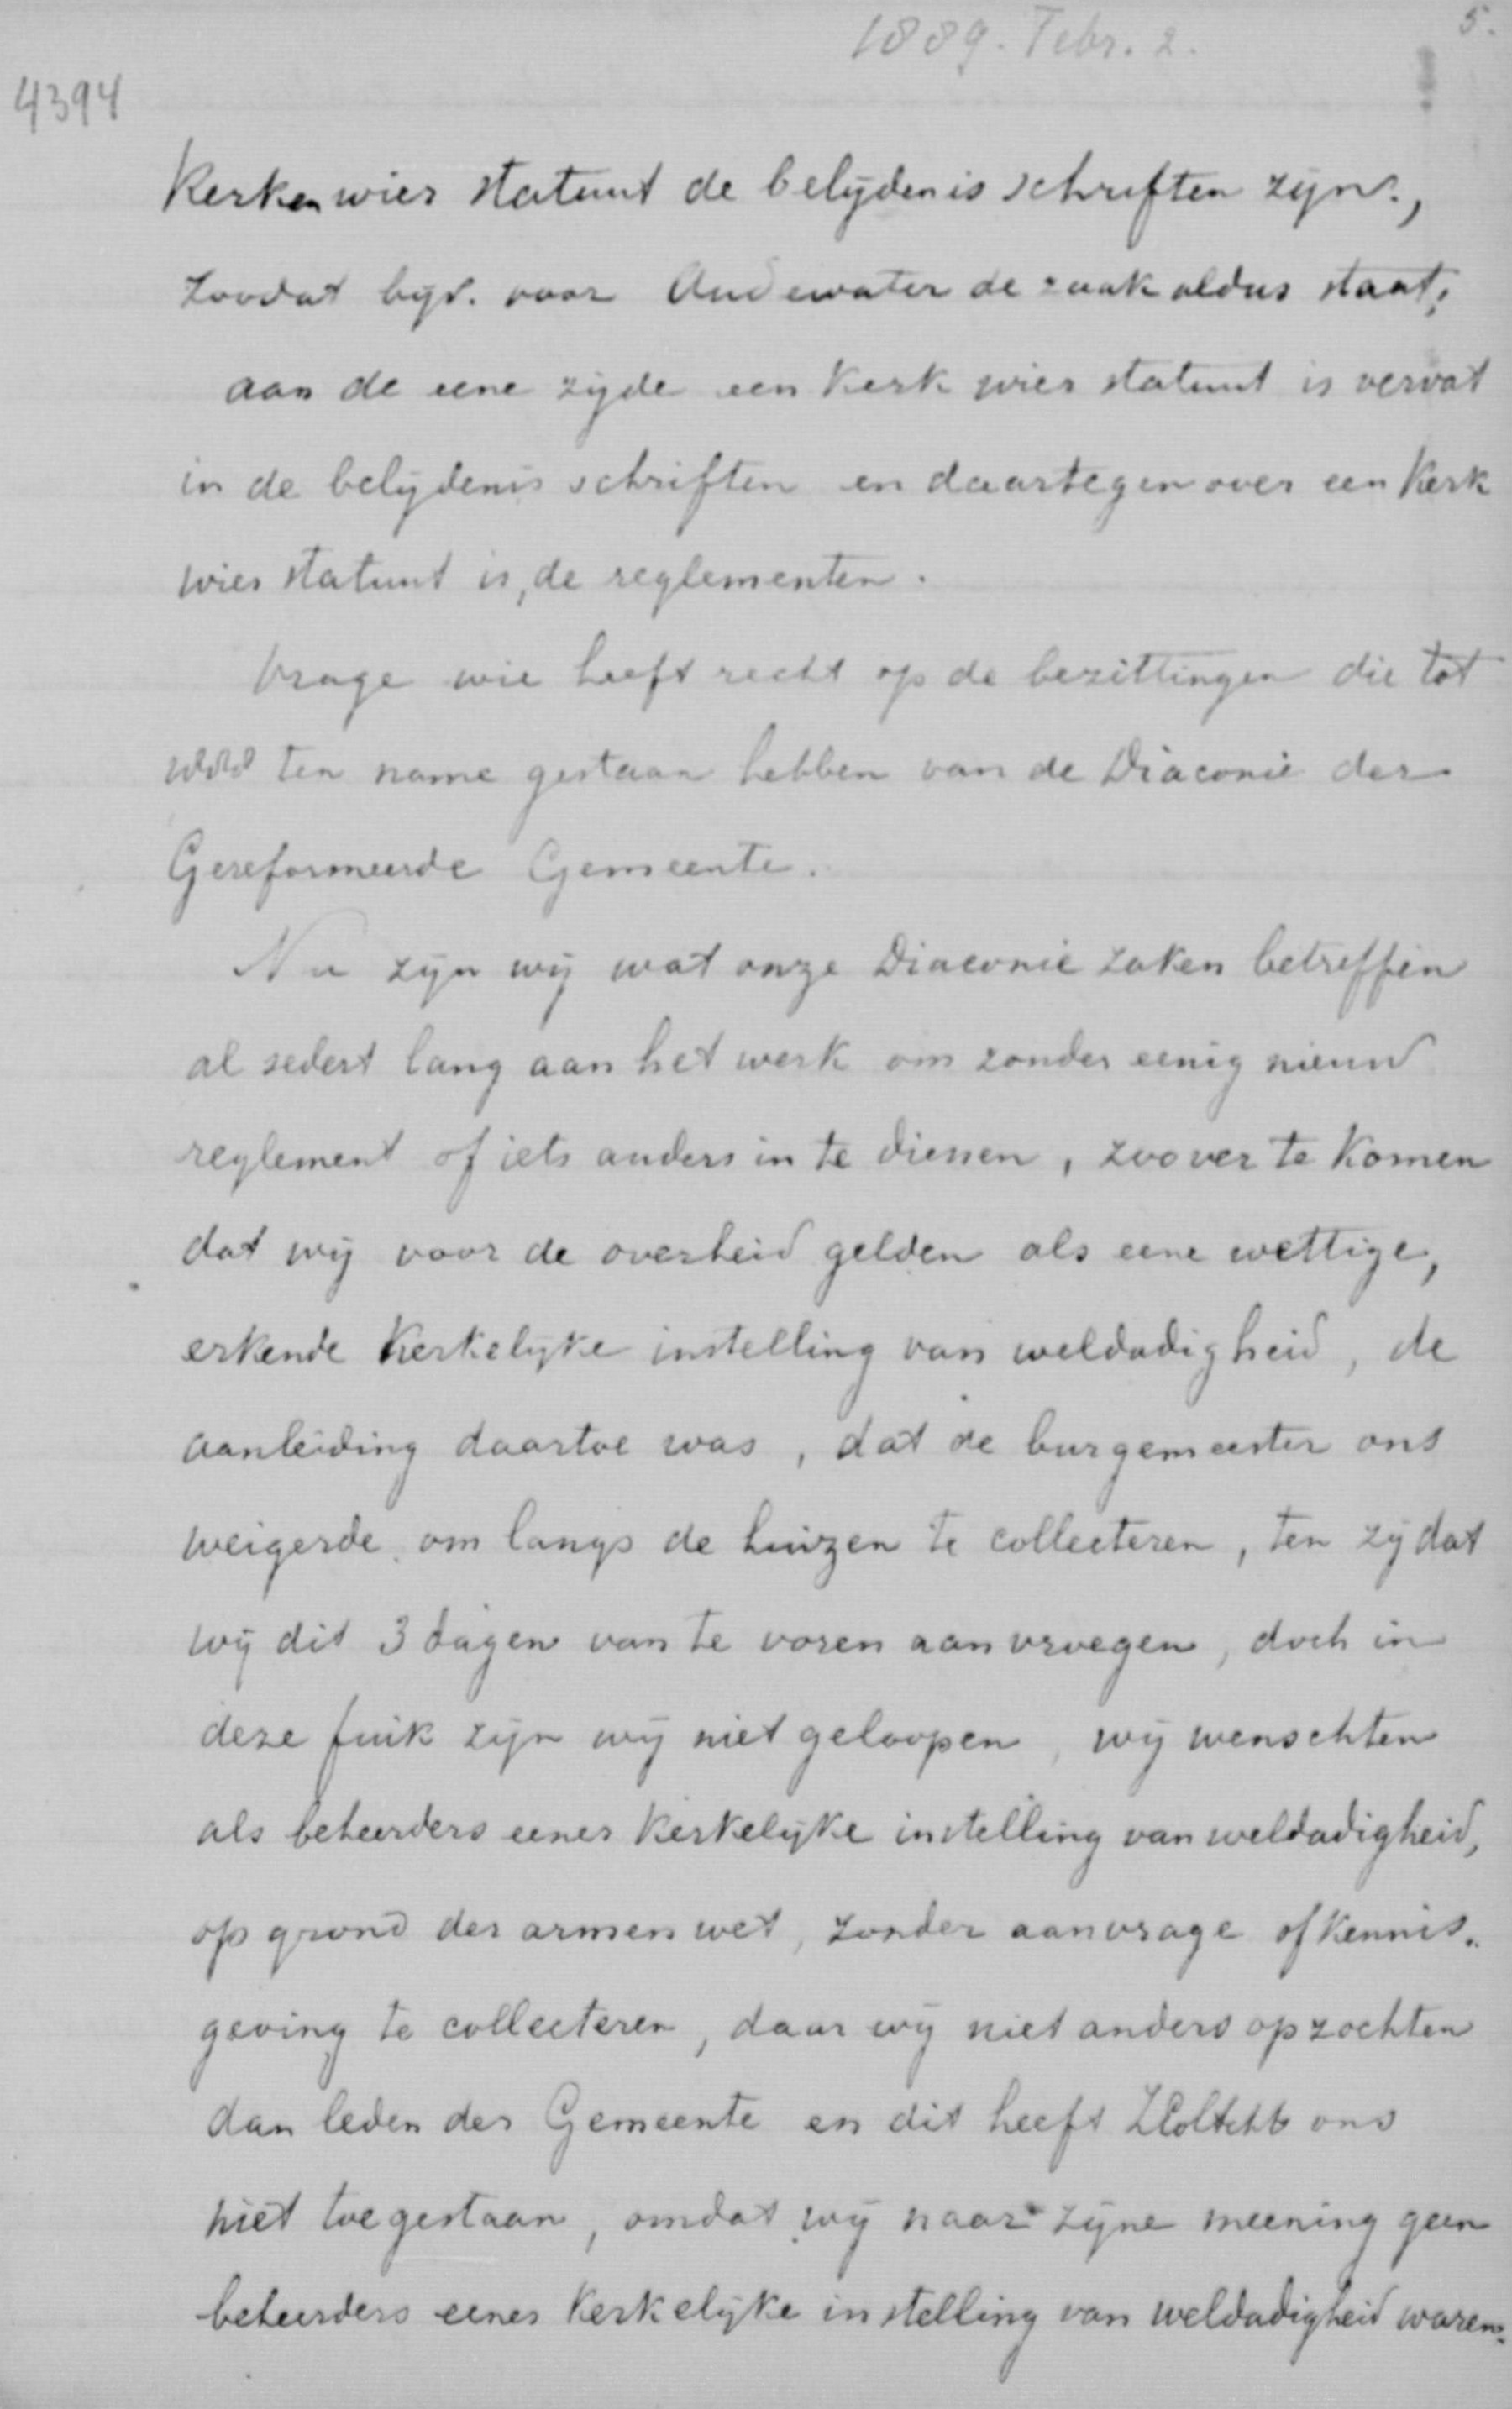 1889. Febr. 2.
5.
4394
Kerken wier statuut de belijdenis schriften zijn.,
zoodat bijv. voor Oudewater de zaak aldus staat;
aan de eene zijde een Kerk wier statuut is vervat
in de belijdenis schriften en daartegenover een Kerk
wier statuut is, de reglementen.
Vrage wie heeft recht op de bezittingen die tot
ten name gestaan hebben van de Diaconie der
Gereformeerde Gemeente.
Nu zijn wij wat onze Diaconie zaken betreffen
al sedert lang aan het werk om zonder eenig nieuw
reglement of iets anders in te dienen, zoover te Komen
dat wij voor de overheid gelden als eene wettige,
erkende Kerkelijke instelling van weldadigheid, de
aanleiding daartoe was, dat de burgemeester ons
weigerde om langs de huizen te collecteren, ten zij dat
wij dit 3 dagen van te voren aanvroegen, doch in
deze fuik zijn wij niet geloopen, wij wenschten
als beheerders eener Kerkelijke instelling van weldadigheid,
op grond der armen wet, zonder aanvrage of Kennis„
geving te collecteren, daar wij niet anders opzochten
dan leden der Gemeente en dit heeft ons
niet toegestaan, omdat wij naar zijne meening geen
beheerders eener Kerkelijke instelling van weldadigheid waren.